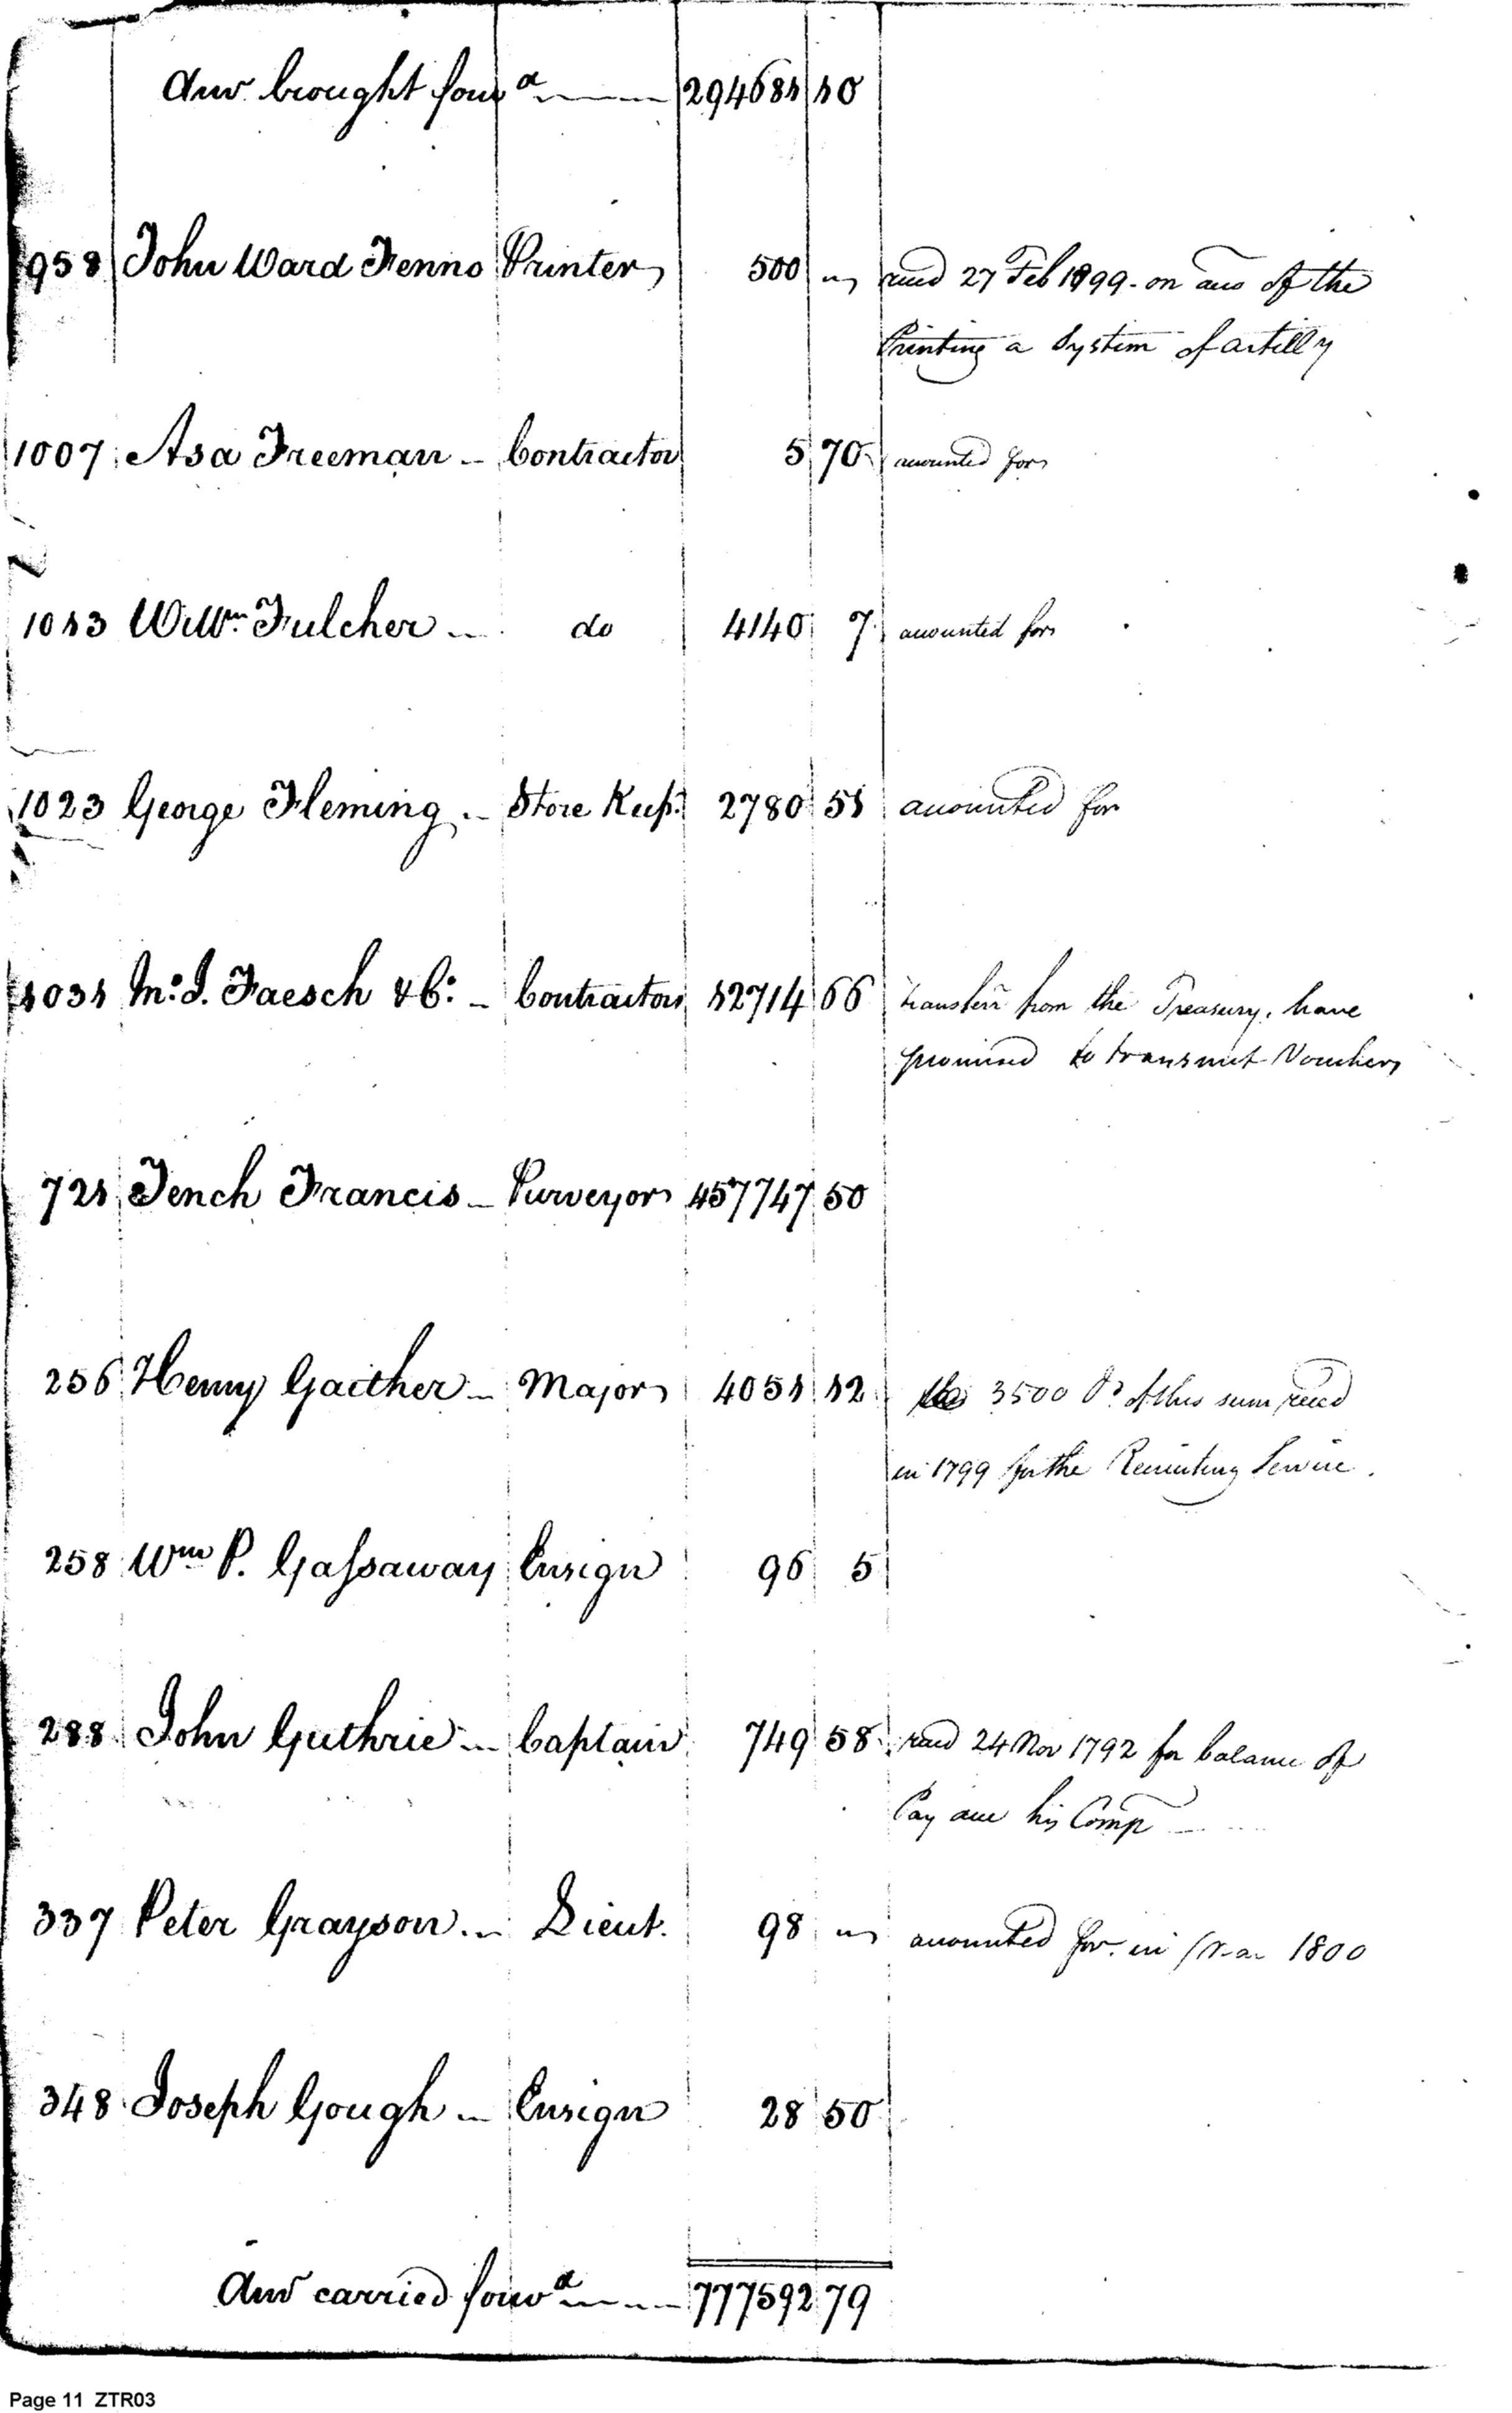 Amt brought forwd 294681 10
958 John Ward Fenno Printer 500 " recd 27 Feb 1799 - on acco of the
Printing a System of artilly
1007 Asa Freeman Contractor 5 70 accounted for
1013 Willm Fulcher do 4140 7 accounted for
1023 George Fleming Store Keepr 2780 51 accounted for
1031 Mo. J. Faesch & Co: Contractors 12714 66 transferr from the Treasury, have
promised to transmit Vouchers
721 Tench Francis Purveyor 457747 50
256 Henry Gaither Major 4051 12 3500 Ds of this sum recd
in 1799 for the Recruiting Service.
258 Wm P. Gassaway Ensign 96 5
288 John Guthrie Captain 749 58 recd 24 Nov 1792 for balance of
Pay due his Comp
337 Peter Grayson Lieut. 98 " accounted for in Mar 1800
348 Joseph Gough Ensign 28 50
Amt carried forwd 777592 79
Page 11 ZTR03